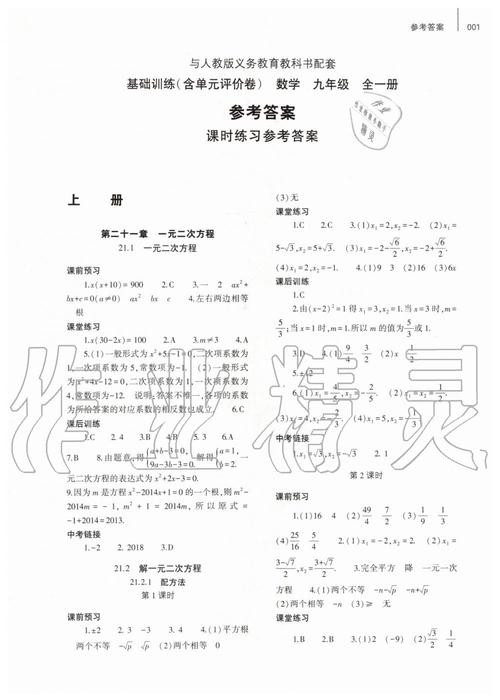 参考答案 001
与人教版义务教育教科书配套
基础训练(含单元评价卷) 数学 九年级 全一册
参考答案
课时练习参考答案
上 册
第二十一章 一元二次方程
21.1 一元二次方程
课前预习
1.x(x+10)=900 2.C 3.一 2 ax²+
bx+c=0(a≠0) ax² bx c 4.左右两边相等
根
课堂练习
1.x(30-2x)=100 2.A 3.m≠3 4.A
5.(1)一般形式为x²+5x-1=0,二次项系数为
1,一次项系数为5,常数项为-1. (2)一般形式
为x²+4x-12=0,二次项系数为1,一次项系数为
4,常数项为-12. 说明:答案不唯一,各项的系数
为所给答案的对应系数的相反数也成立. 6.C
课后训练
1.C 2.4 3.B 4.B 5.A 6.A
7.B 8.由题意,得{a+b-3=0, 9a-3b-3=0. 解得{a=1, b=2. 一
元二次方程的表达式为x²+2x-3=0.
9.因为m是方程x²-2014x+1=0的一个根,则m²-
2014m=-1, m²+1=2014m, 所以原式=
-1+2014=2013.
中考链接
1.-2 2.2018 3.D
21.2 解一元二次方程
21.2.1 配方法
第1课时
课前预习
1.±2 2.3 -3 3.4 4.(1)平方根
两个不等 -√p √p (2)两个相等 0
(3)无
课堂练习
1.C 2.C 3.(1)x₁=2,x₂=-2. (2)x₁=
5-√3,x₂=5+√3. (3)x₁=-2-√6/2,x₂=-2+√6/2.
(4)x₁=2,x₂=-1. 4.(1)9 3 (2)16 (3)6x
课后训练
1.C
2.由(x-2)²=1得x₁=3,x₂=1.当x=3时,m=
5/3;当x=1时,m=1.所以m的值为5/3或1.
3.D 4.(1)9/4 3/2 (2)x 1/2
5.±12
(3)x₁=4,x₂=-2/3 (4)x₁=5,x₂=1/3
中考链接
1.x₁=√3,x₂=-√3 2.1
第2课时
课前预习
1.(1)16 4 (2)49/4 7/2 (3)1/9 1/3
(4)25/16 5/4 2.(1)x₁=-2,x₂=2. (2)x₁=
3-√7/2,x₂=3+√7/2. 3.完全平方 降 一元一次
方程 4.(1)两个不等 -n-√p -n+√p
(2)两个相等 -n (3)≥ 无
课堂练习
1.B 2.B 3.(1)2 (-9) (2)√3/2 1/4
作业精灵